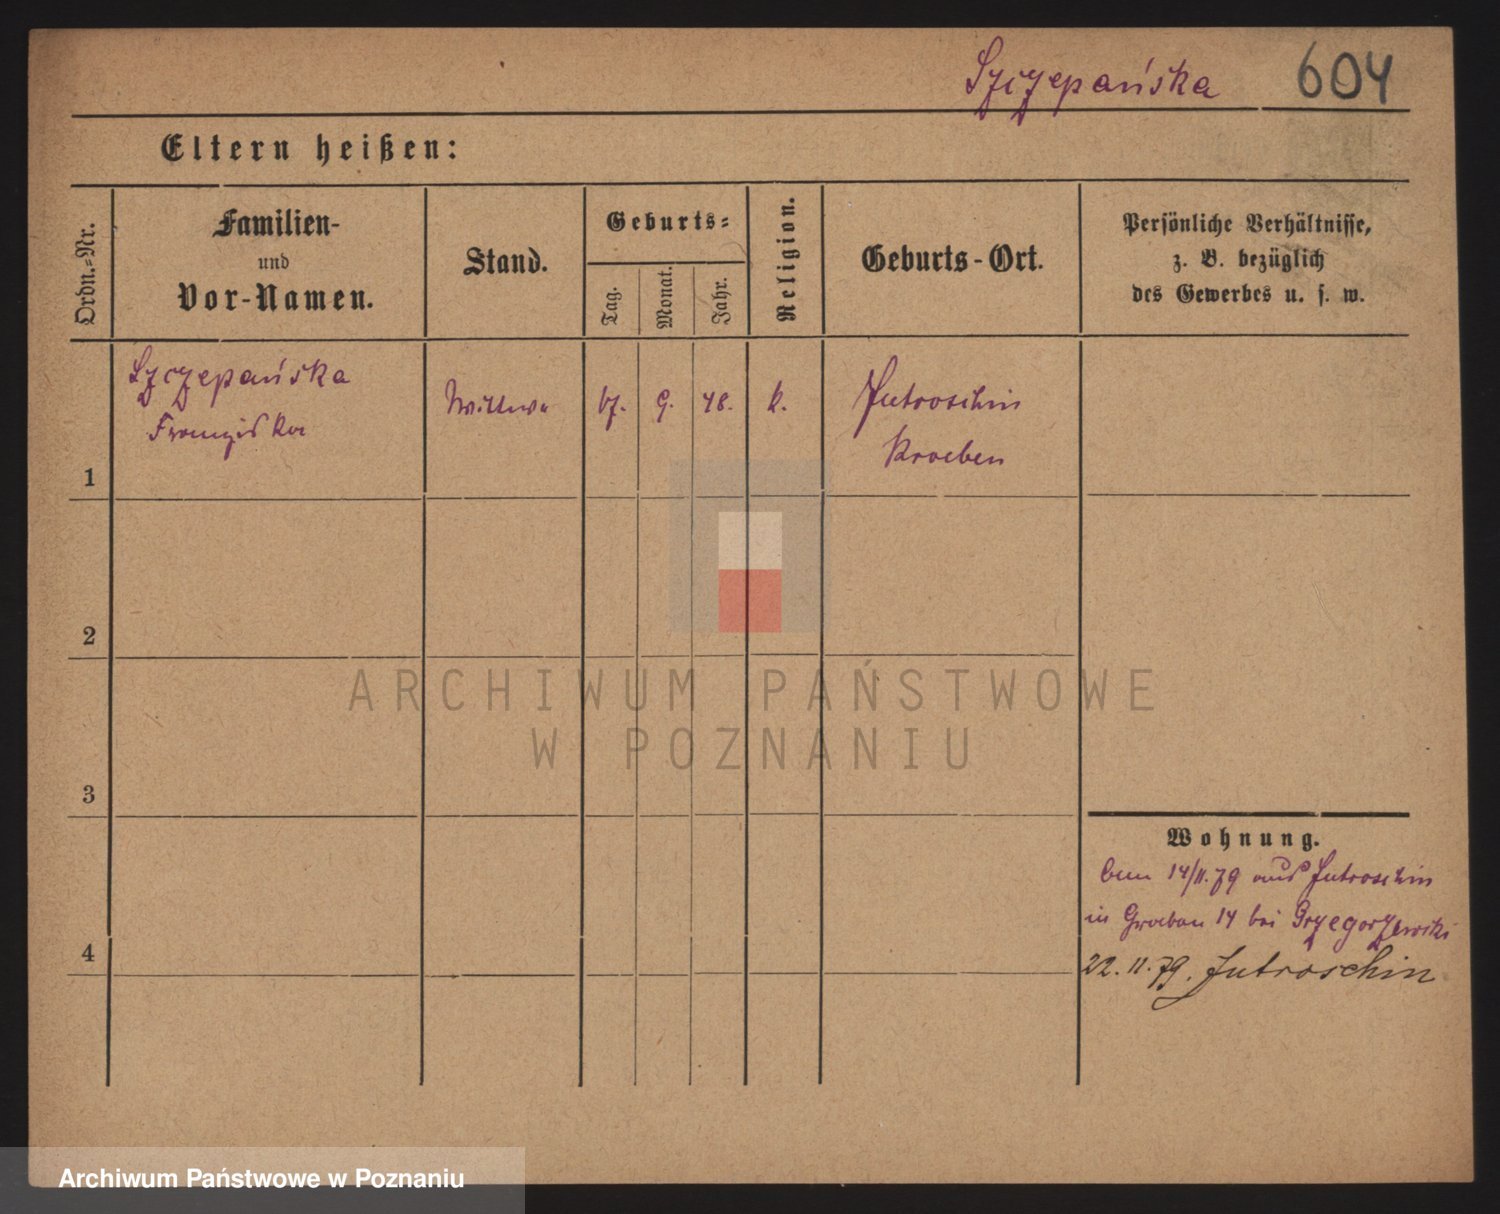 Szczepańska 604
Eltern heißen:
Ordn.-Nr.
Familien-
und
Vor-Namen.
Stand.
Geburts-
Tag.
Monat.
Jahr.
Religion.
Geburts-Ort.
Persönliche Verhältnisse,
z. B. bezüglich
des Gewerbes u. s. w.
1
Szczepańska
Franziska
Wittwe
9.
48.
k.
Jutroschin
Kroeben
2
3
4
Wohnung.
14/11.79 aus Jutroschin
in 14 bei Grzegorzewski
22.11.79. Jutroschin
ARCHIWUM PAŃSTWOWE
W POZNANIU
Archiwum Państwowe w Poznaniu